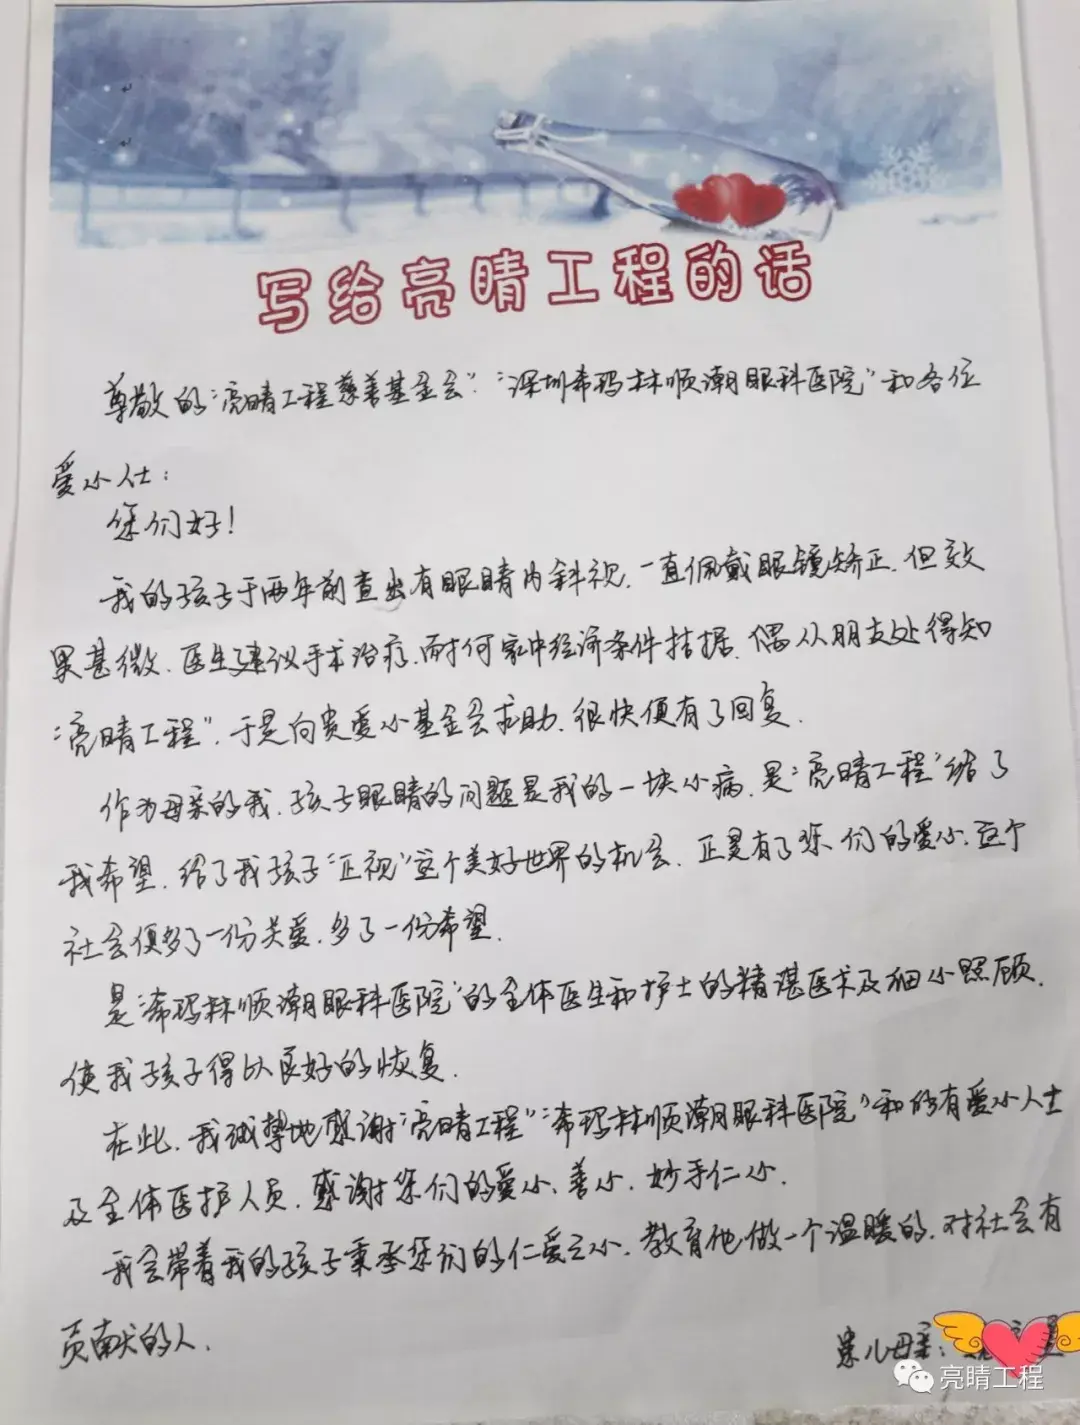 写给亮晴工程的话
尊敬的"亮晴工程慈善基金会"."深圳希玛林顺潮眼科医院"和各位
爱心人士:
您们好!
我的孩子于两年前查出有眼睛内斜视.一直佩戴眼镜矫正.但效
果甚微.医生建议手术治疗.而奈何家中经济条件拮据.偶从朋友处得知
"亮晴工程".于是向贵爱心基金会求助.很快便有了回复.
作为母亲的我.孩子眼睛的问题是我的一块心病.是"亮晴工程"给了
我希望.给了我孩子"正视"这个美好世界的机会.正是有了您们的爱心.这个
社会便多了一份关爱.多了一份希望.
是"希玛林顺潮眼科医院"的全体医生和护士的精湛医术及细心照顾.
使我孩子得以良好的恢复.
在此.我诚挚地感谢"亮晴工程""希玛林顺潮眼科医院"和所有爱心人士
及全体医护人员.感谢您们的爱心、善心.妙手仁心.
我会带着我的孩子秉承您们的仁爱之心.教育他做一个温暖的.对社会有
贡献的人.
患儿母亲:
亮晴工程